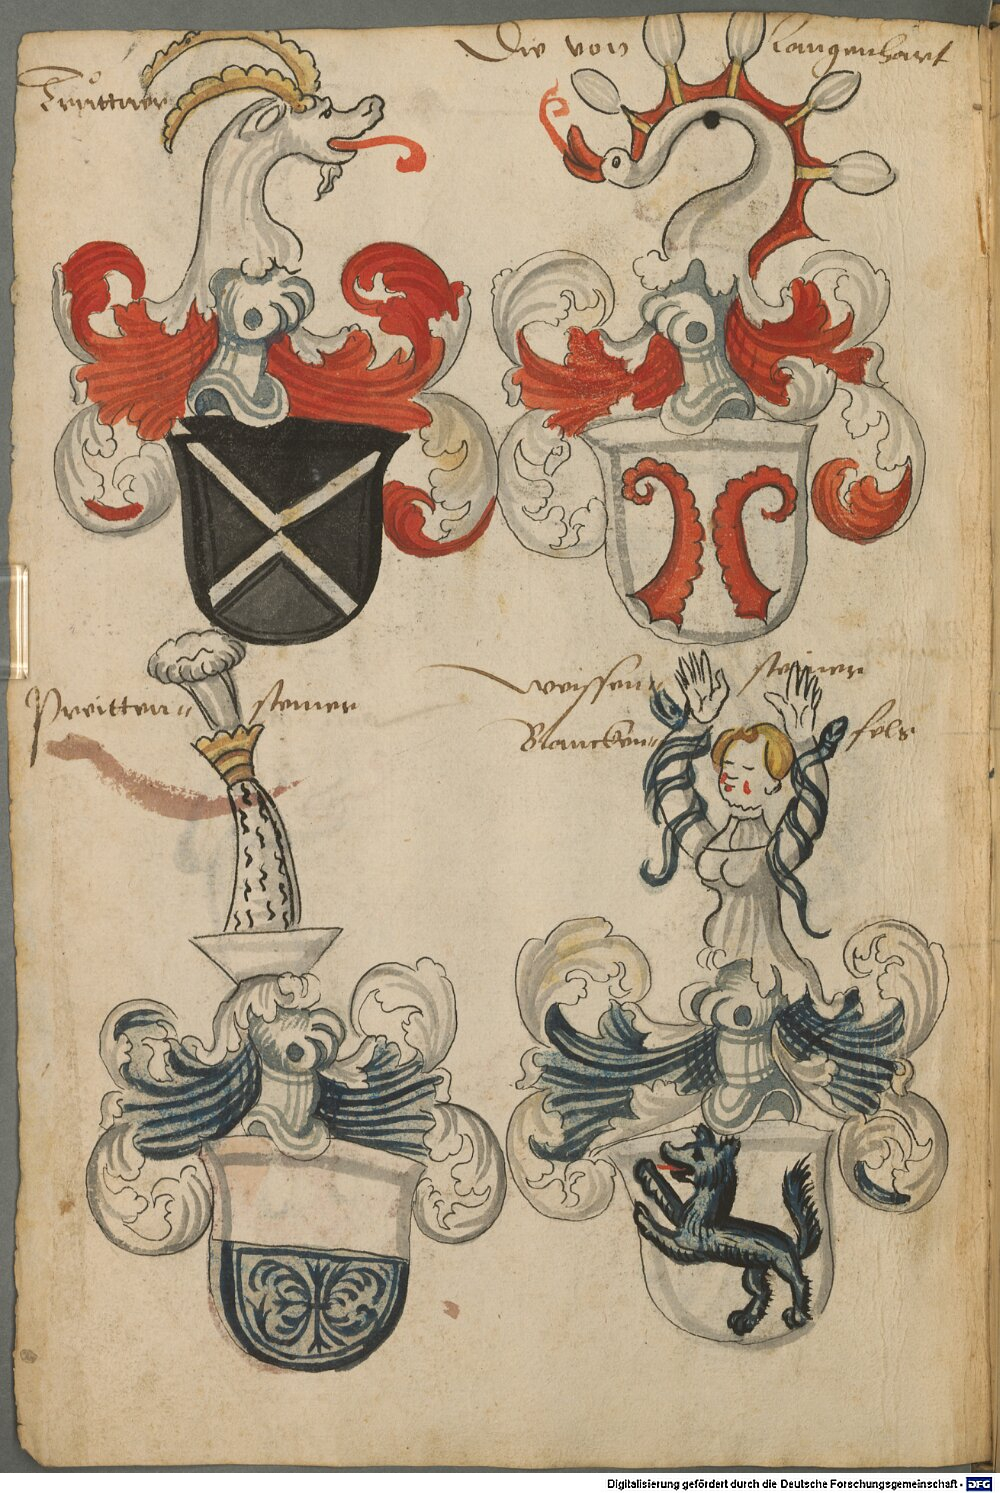 Die von Langenhart
Preitten„ steiner
weissen„ steiner
Blancken„ fels
Digitalisierung gefördert durch die Deutsche Forschungsgemeinschaft - DFG